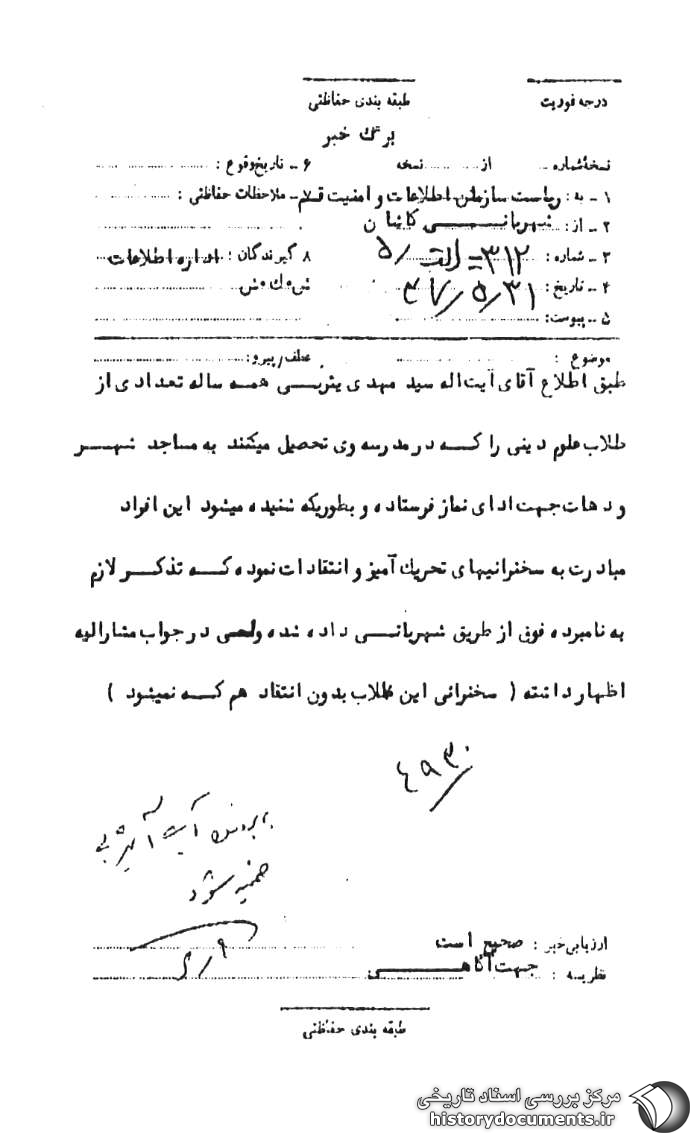 درجه فوریت طبقه بندی حفاظتی
برگ خبر
نسخهٔ شماره .. از .... نسخه ۶ ـ تاریخ وقوع :
۱ ـ به : ریاست سازمان اطلاعات و امنیت قم ۷ ـ ملاحظات حفاظتی :
۲ ـ از : شهربانی کاشان
۳ ـ شماره : ۳۱۲ـ الف /۵ ۸ گیرندگان : اداره اطلاعات
۴ ـ تاریخ : ۴۷/۵/۳۱ ش ه ك ه ش
۵ ـ پیوست :
موضوع : عطف/پیرو :
طبق اطلاع آقای آیت اله سید مهدی یثربی همه ساله تعدادی از
طلاب علوم دینی را که در مدرسه وی تحصیل میکنند به مساجد شهر
و دهات جهت ادای نماز فرستاده و بطوریکه شنیده میشود این افراد
مبادرت به سخنرانیهای تحریك آمیز و انتقادات نموده که تذکر لازم
به نامبرده فوق از طریق شهربانی داده شده ولی در جواب مشارالیه
اظهار داشته ( سخنرانی این طلاب بدون انتقاد هم که نمیشود )
۴۹۳۰
ضمیه شود
۶/۹
ارزیابی خبر : صحیح است
نظریه : جهت آگاهی
طبقه بندی حفاظتی
مرکز بررسی اسناد تاریخی
historydocuments.ir